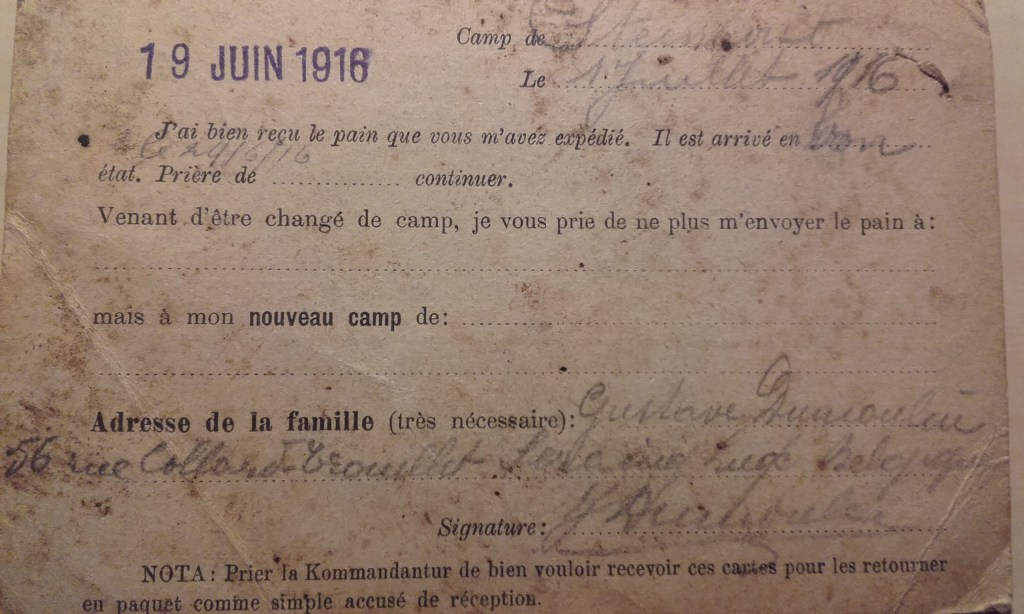 19 JUIN 1916
Camp de
Le 1 Juillet 1916
J'ai bien reçu le pain que vous m'avez expédié. Il est arrivé en bon
le 29/6/16
état. Prière de .................. continuer.
Venant d'être changé de camp, je vous prie de ne plus m'envoyer le pain à:
mais à mon nouveau camp de:
Adresse de la famille (très nécessaire): Gustave Dumoulin
56 rue Collard-Trouillet Seraing Belgique
Signature: Dumoulin
NOTA: Prier la Kommandantur de bien vouloir recevoir ces cartes pour les retourner
en paquet comme simple accusé de réception.